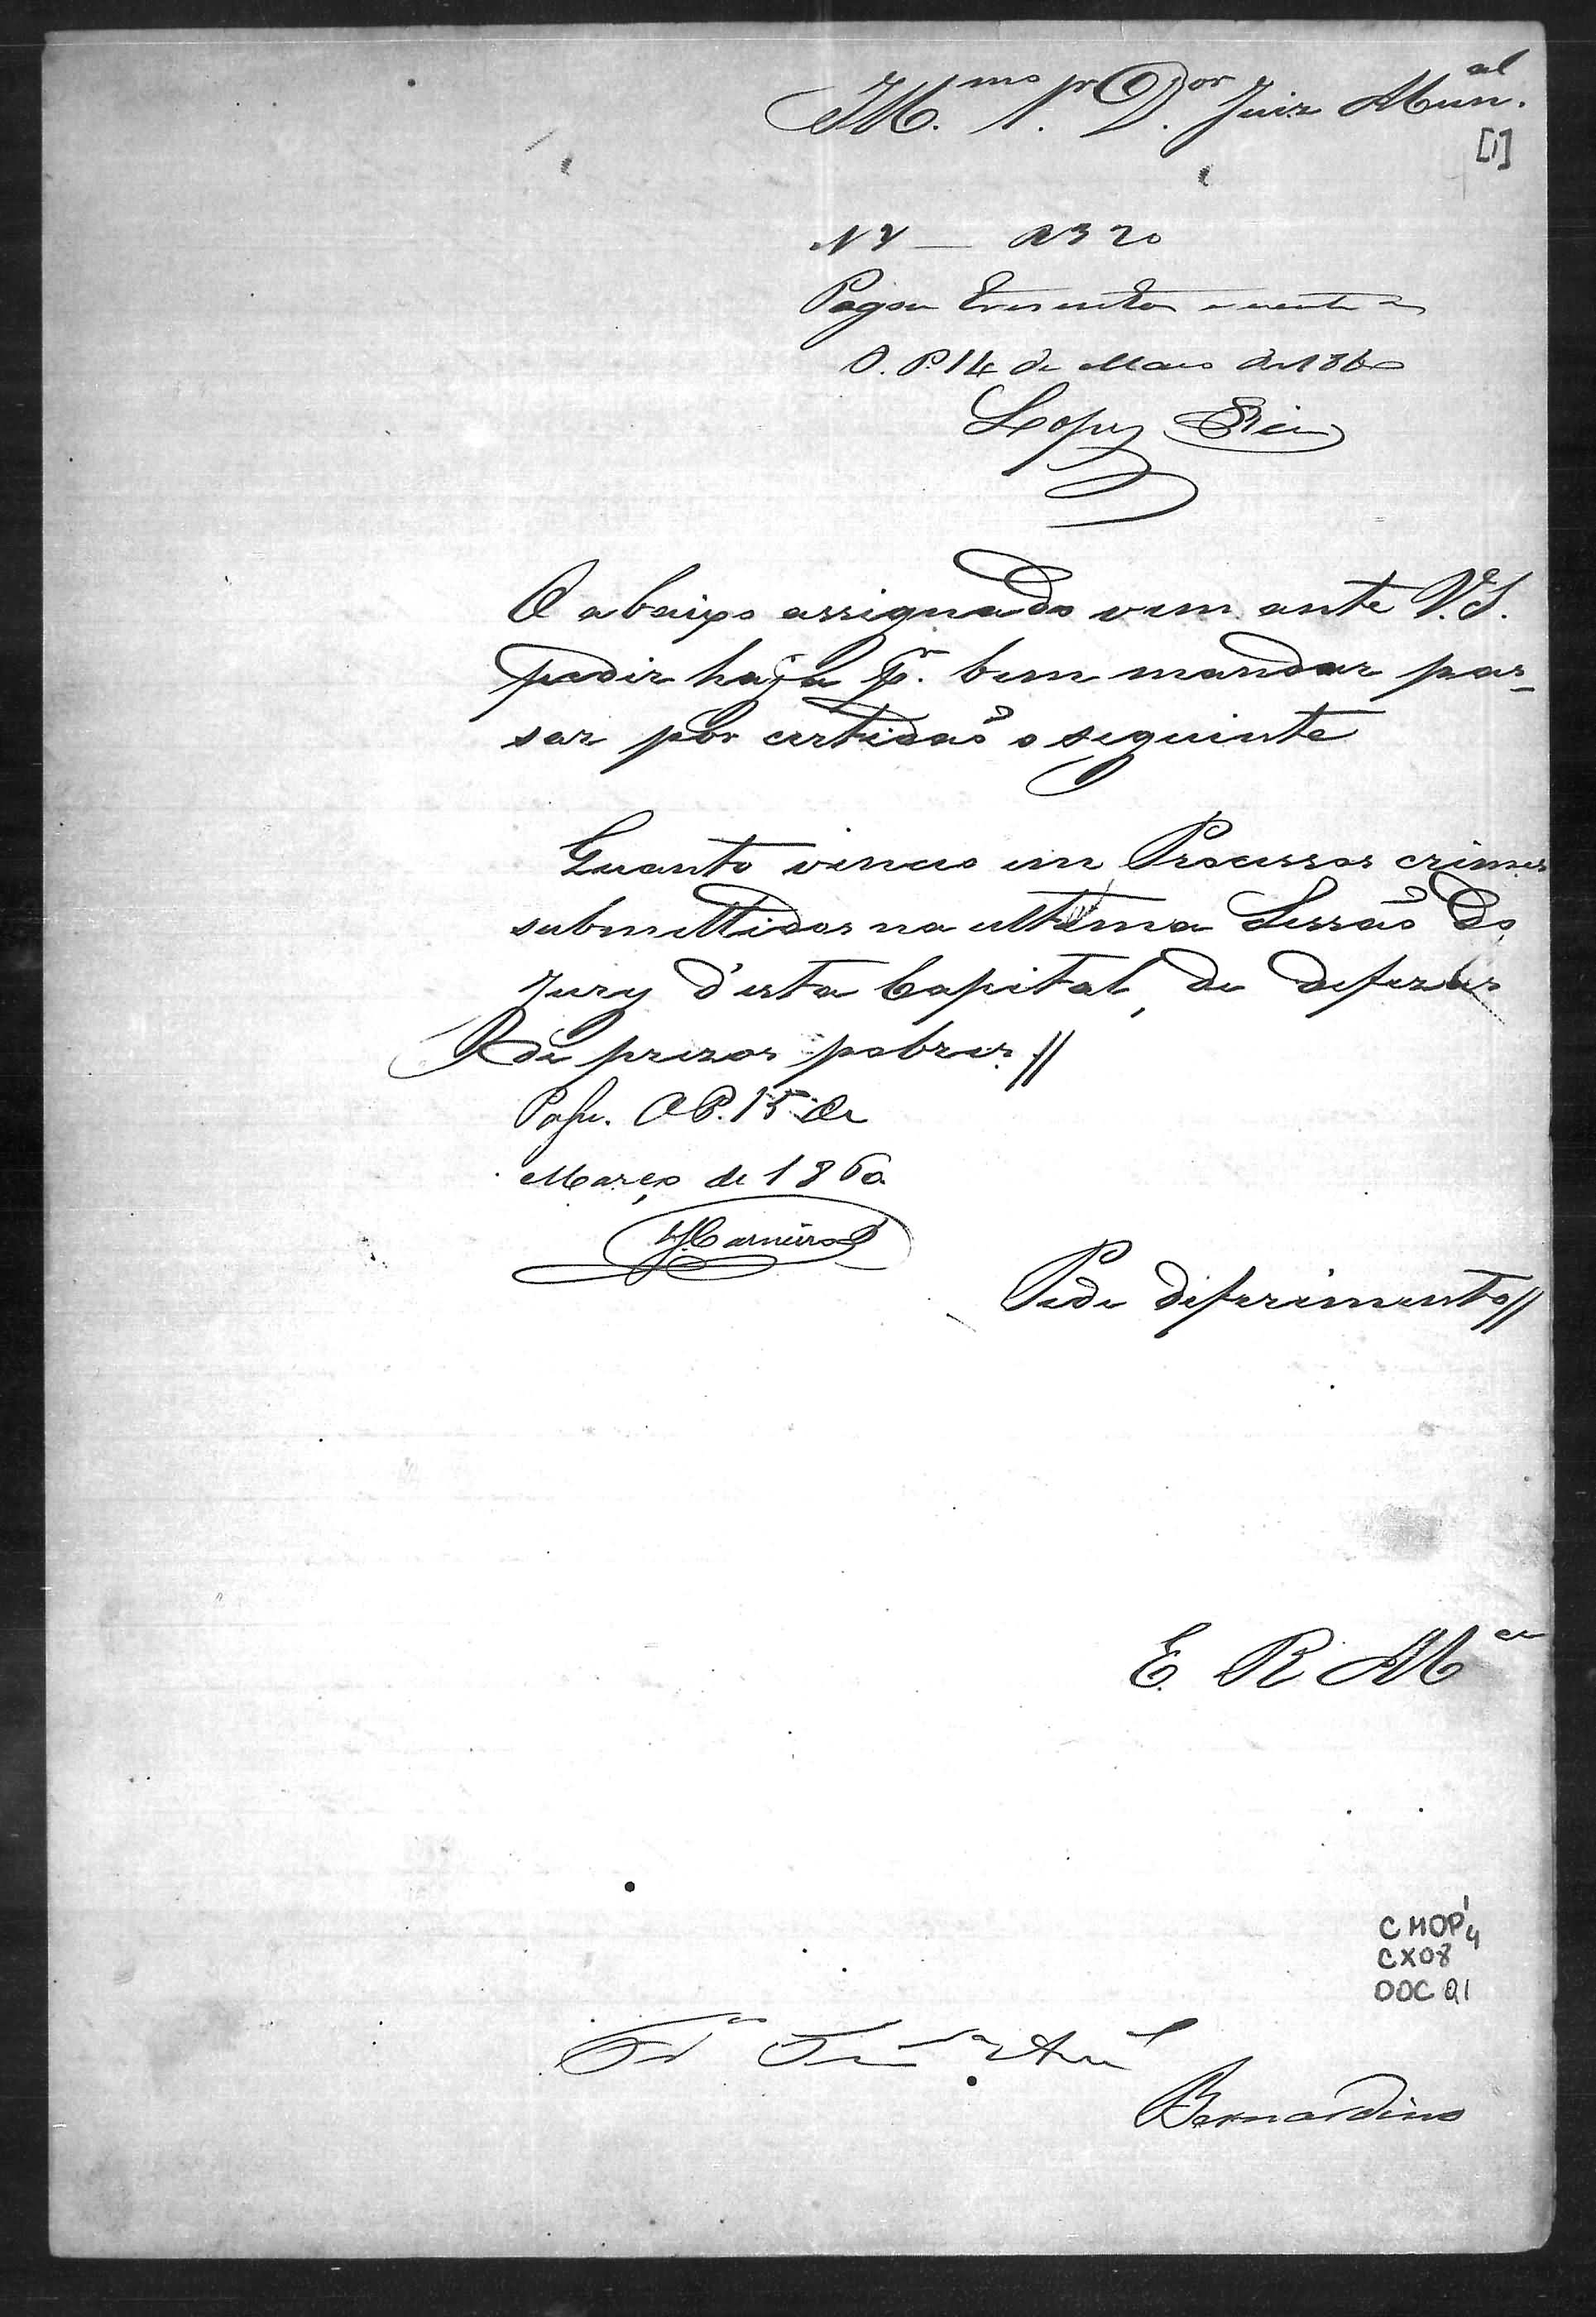 Ill.mo Sr. D.or Juiz Mun.al
[1]
N 4 — R 320
Pagou trezentos e vinte rs
O. P. 14 de Março de 1860
Lopes
O abaixo assignado vem ante V.S.
pedir haja p.r bem mandar pas-
sar por certidaõ o seguinte
Quanto venceo em Processos crimes
submettidos na ultima Sessaõ do
Jury d'esta Capital, de defezas
de prezos pobres.//
Passe. O P. 15 de
Março de 1860
Carneiro
Pede deferimento//
E. R. M.ce
CMOP 1/4
CX08
DOC 21
Bernardino